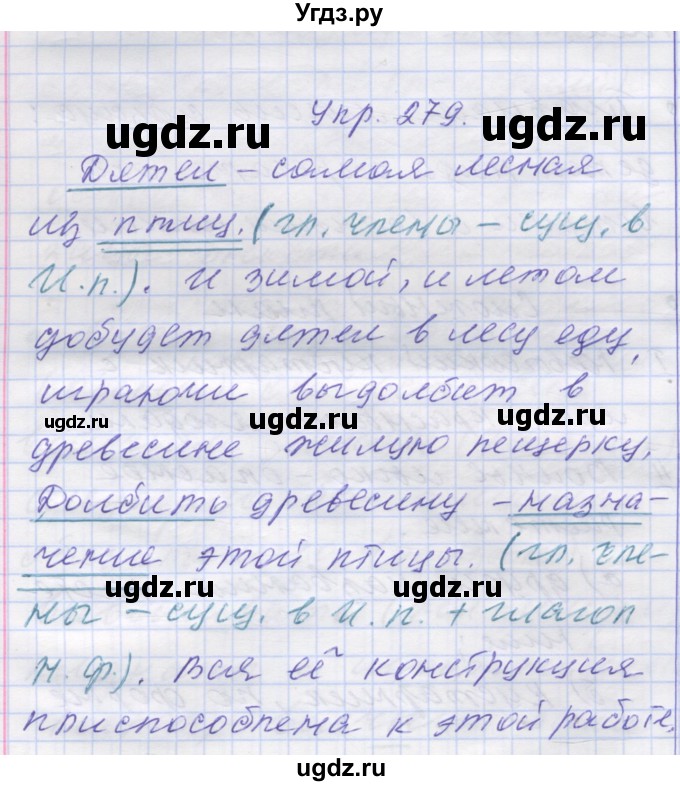 Угдз.ру
ugdz.ru ugdz.ru
Упр. 279.
Дятел – самая лесная
из птиц. (гл. члены – сущ. в
И.п.). И зимой, и летом
добудет дятел в лесу еду,
играючи выдолбит в
ugdz.ru ugdz.ru ugdz.ru
древесине жилую пещерку.
Долбить древесину – назна-
чение этой птицы. (гл. чле-
ugdz.ru ugdz.ru
ны – сущ. в И.п. + глагол
н.ф.). Вся её конструкция
приспособлена к этой работе.
ugdz.ru